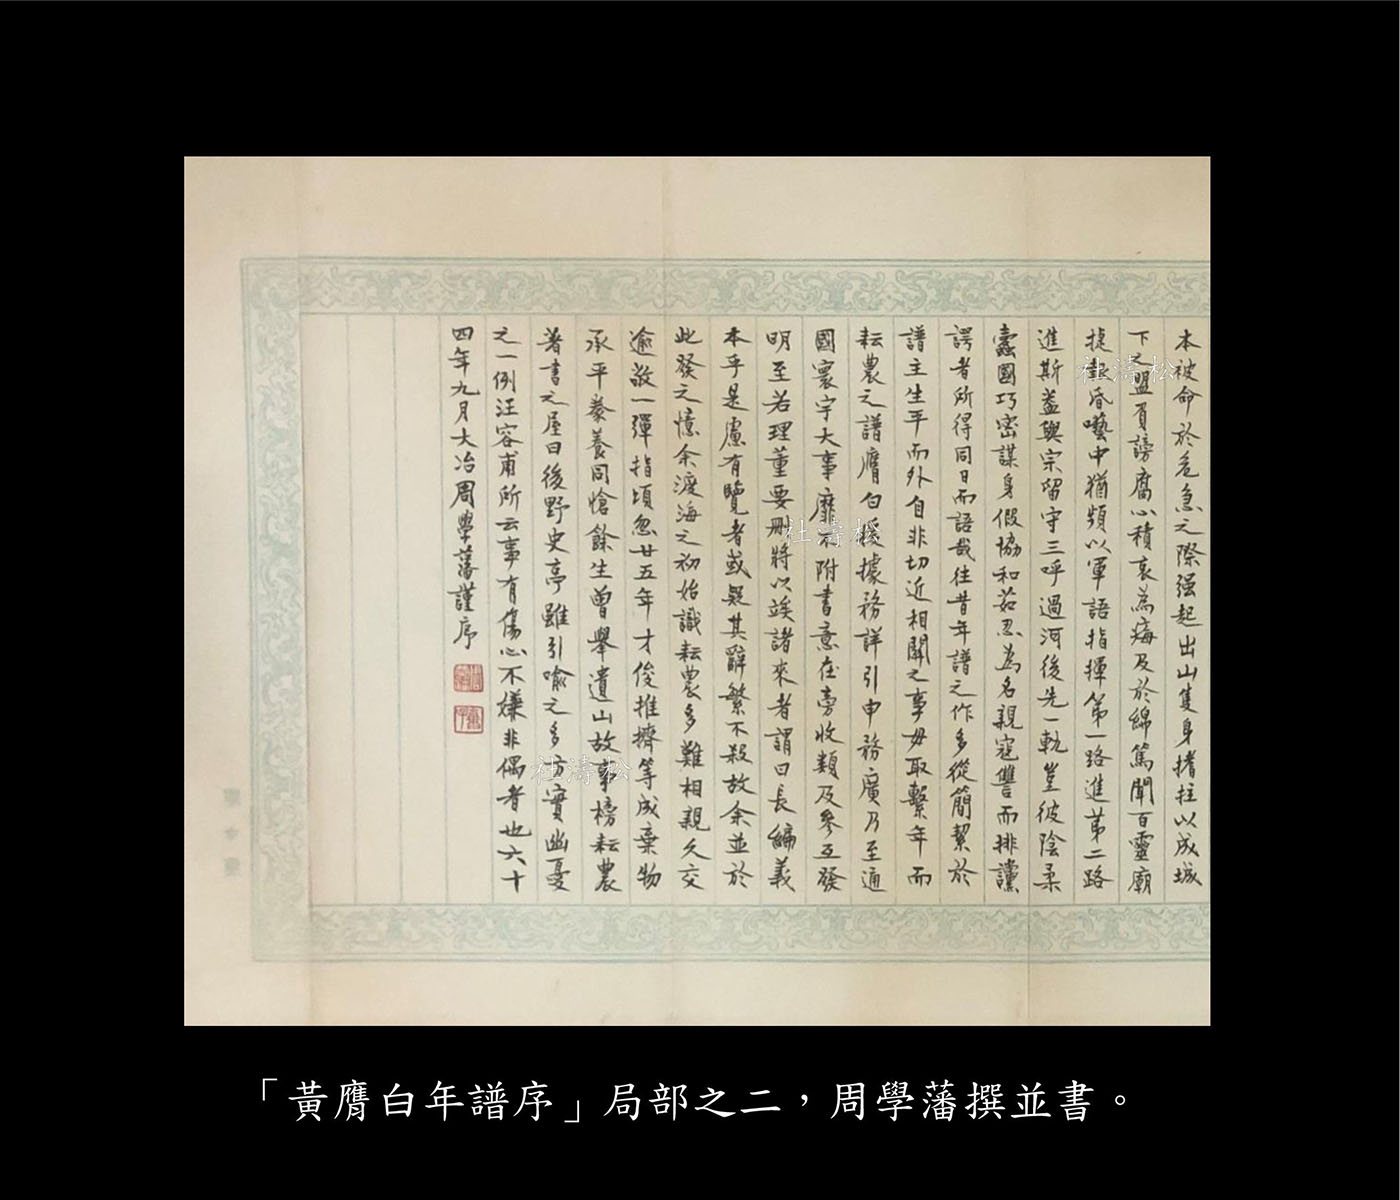 本被命於危急之際强起出山隻身撐拄以成城
下之盟負謗腐心積哀為痗及於綿篤聞百靈廟
捷起昏囈中猶頻以軍語指揮第一路進第二路
進斯蓋與宗留守三呼過河後先一軌豈彼陰柔
蠹國巧密謀身假協和茹忍為名親寇讐而排讜
諤者所得同日而語哉往昔年譜之作多從簡絜於
譜主生平而外自非切近相關之事毋取繫年而
耘農之譜膺白援據務詳引申務廣乃至通
國寰宇大事靡不附書意在旁收類及參互發
明至若理董要刪將以竢諸來者謂曰長編義
本乎是慮有覽者或疑其辭繁不殺故余並於
此發之憶余渡海之初始識耘農多難相親久交
逾敬一彈指頃忽廿五年才俊推擠等成棄物
承平豢養同愴餘生曾舉遺山故事榜耘農
著書之屋曰後野史亭雖引喻之多方實幽憂
之一例汪容甫所云事有傷心不嫌非偶者也六十
四年九月大冶周學藩謹序
杜濤松
杜濤松
杜濤松
「黃膺白年譜序」局部之二，周學藩撰並書。